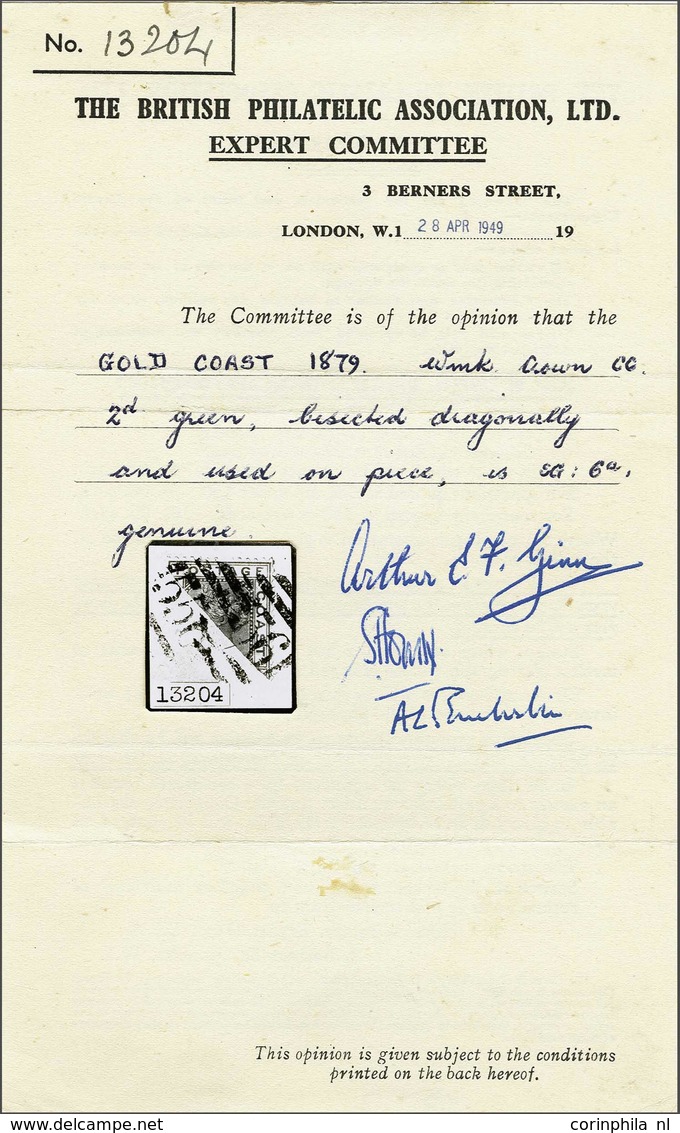 No. 13204
THE BRITISH PHILATELIC ASSOCIATION, LTD.
EXPERT COMMITTEE
3 BERNERS STREET,
LONDON, W.1 28 APR 1949 19
The Committee is of the opinion that the
GOLD COAST 1879. Wmk Crown CC.
2d green, bisected diagonally
and used on piece, is SG: 6a,
genuine.
Arthur E. F. Ginn
POSTAGE
COAST
13204
This opinion is given subject to the conditions
printed on the back hereof.
www.delcampe.net
corinphila nl